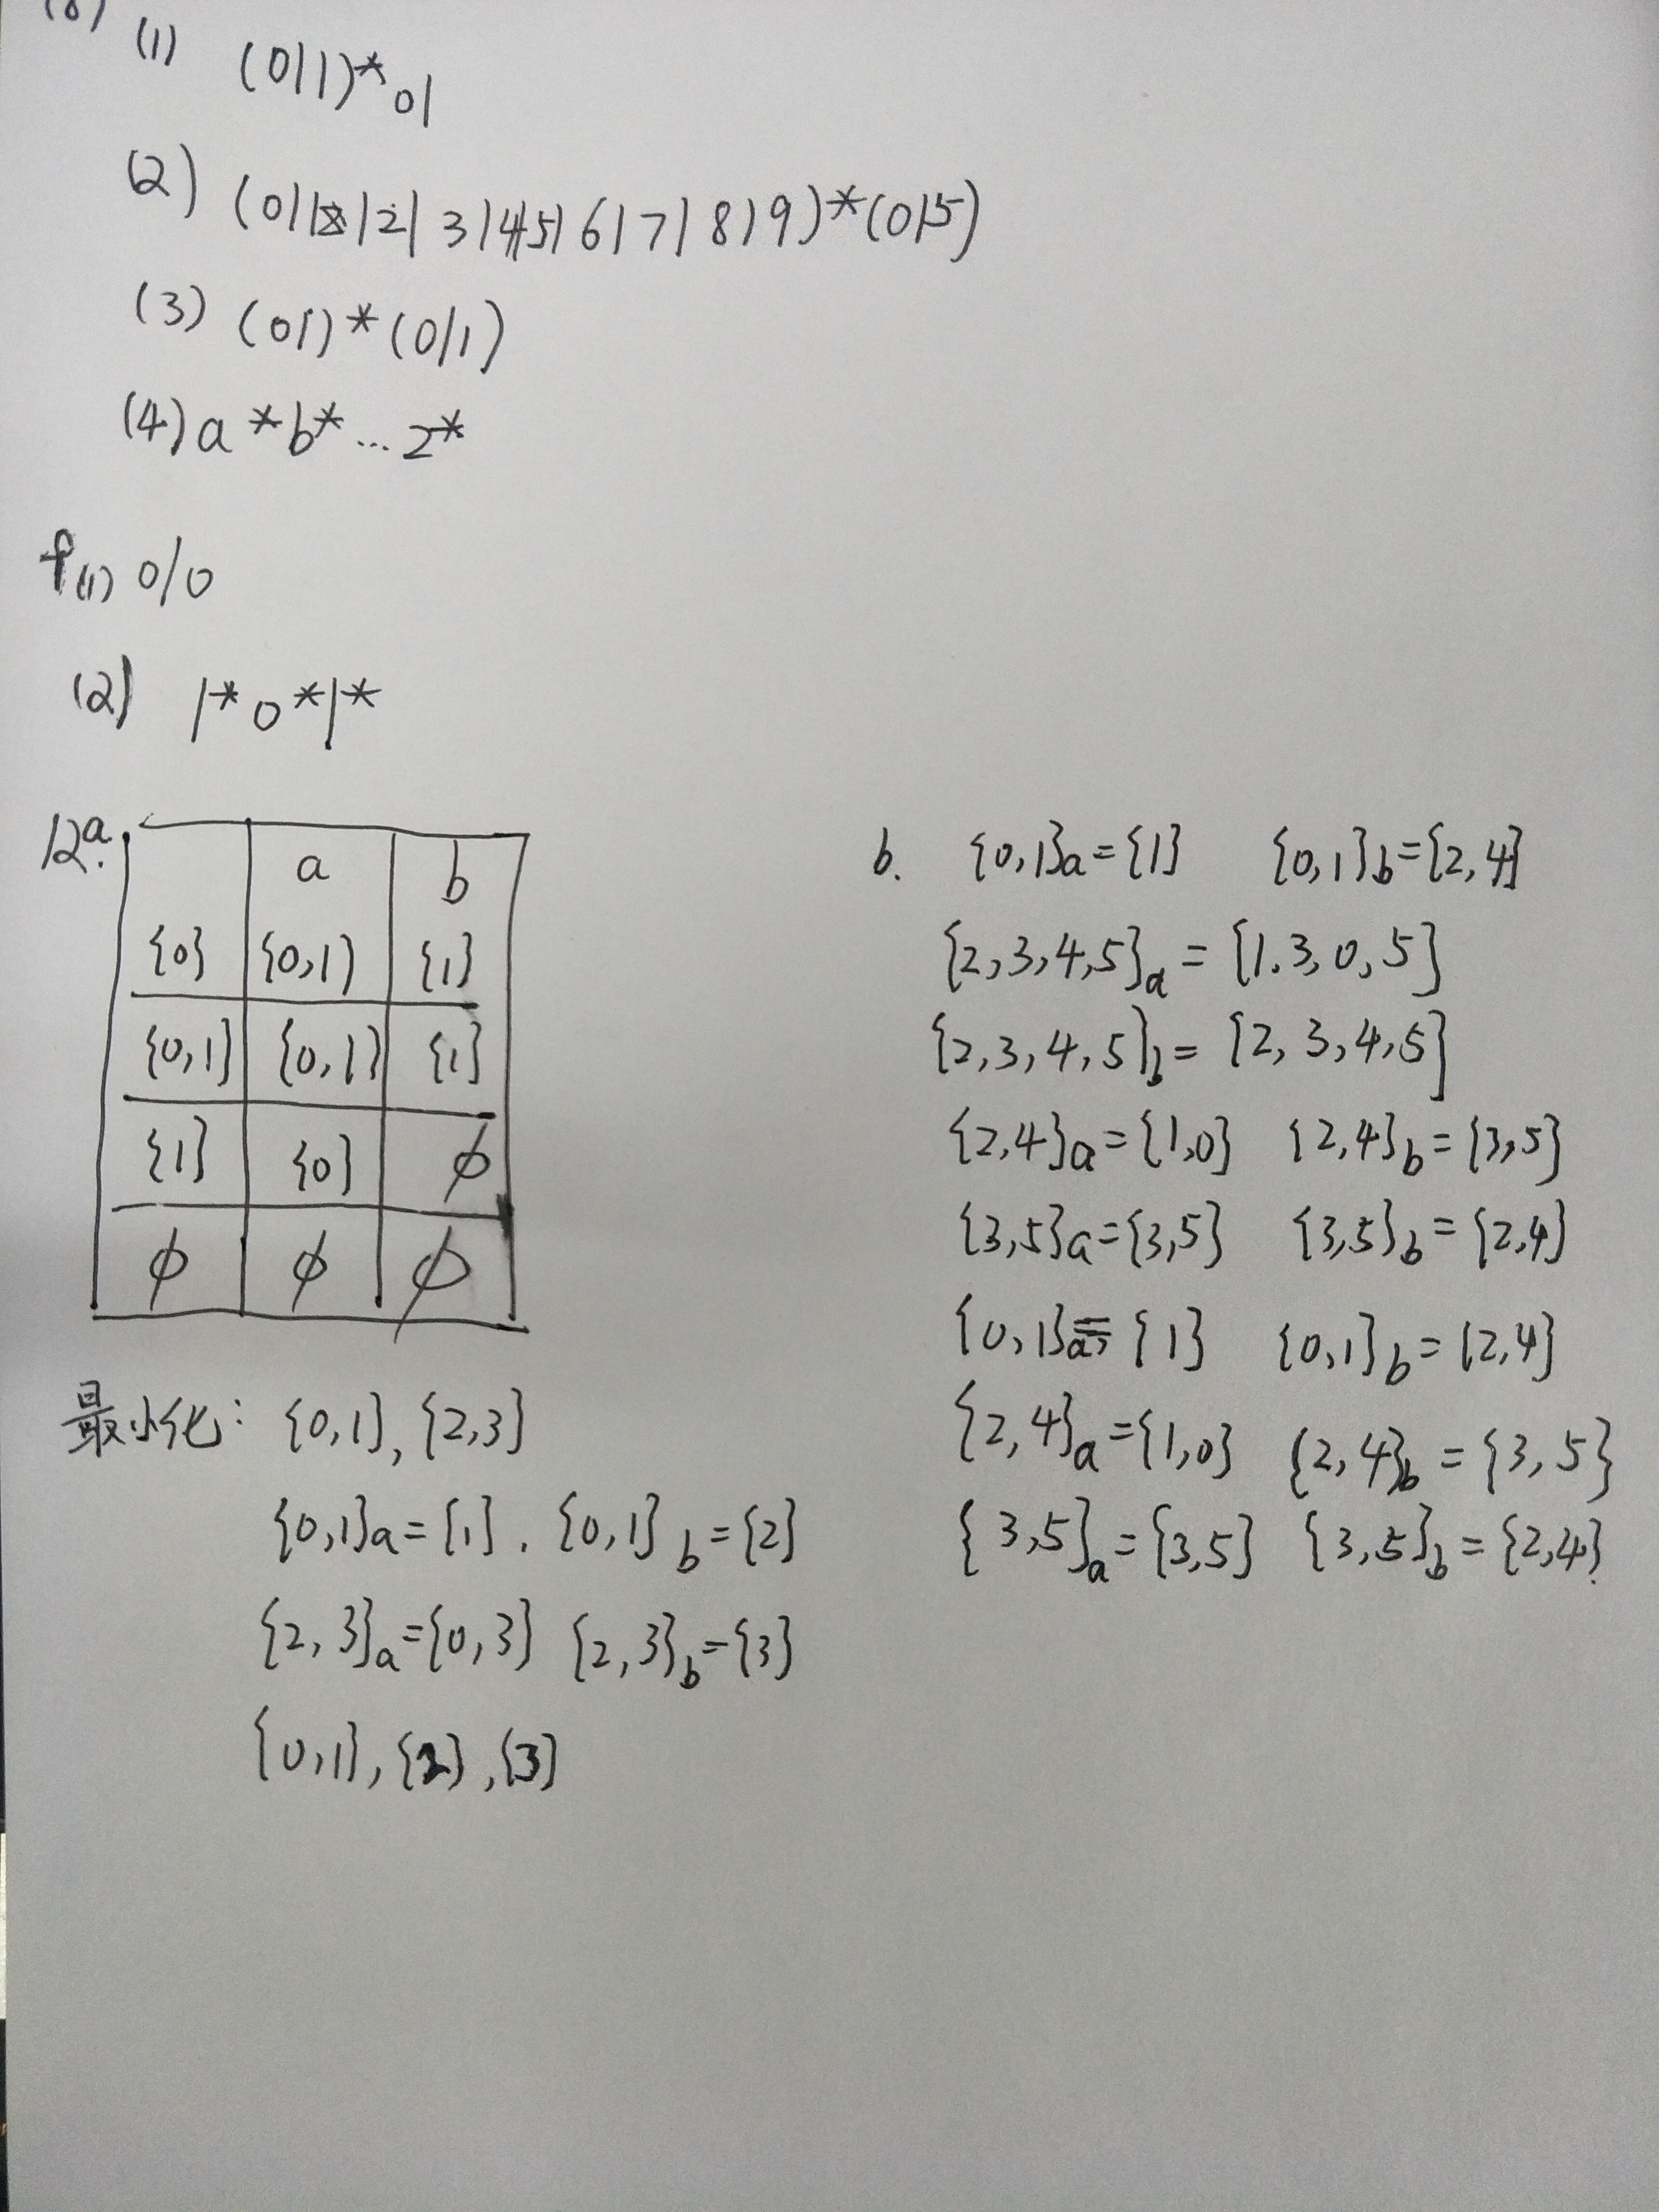 (8)
(1) (0|1)*01
(2) (0|1|2|3|4|5|6|7|8|9)*(0|5)
(3) (01)*(0/1)
(4) a*b*...z*
(1) 0/0
(2) 1*0*1*
12a.
a b
{0} {0,1} {1}
{0,1} {0,1} {1}
{1} {0} ϕ
ϕ ϕ ϕ
最小化: {0,1},{2,3}
{0,1}a={1}. {0,1}b={2}
{2,3}a={0,3} {2,3}b={3}
{0,1},{2},{3}
b. {0,1}a={1} {0,1}b={2,4}
{2,3,4,5}a={1.3,0,5}
{2,3,4,5}b={2,3,4,5}
{2,4}a={1,0} {2,4}b={3,5}
{3,5}a={3,5} {3,5}b={2,4}
{0,1}a={1} {0,1}b={2,4}
{2,4}a={1,0} {2,4}b={3,5}
{3,5}a={3,5} {3,5}b={2,4}.